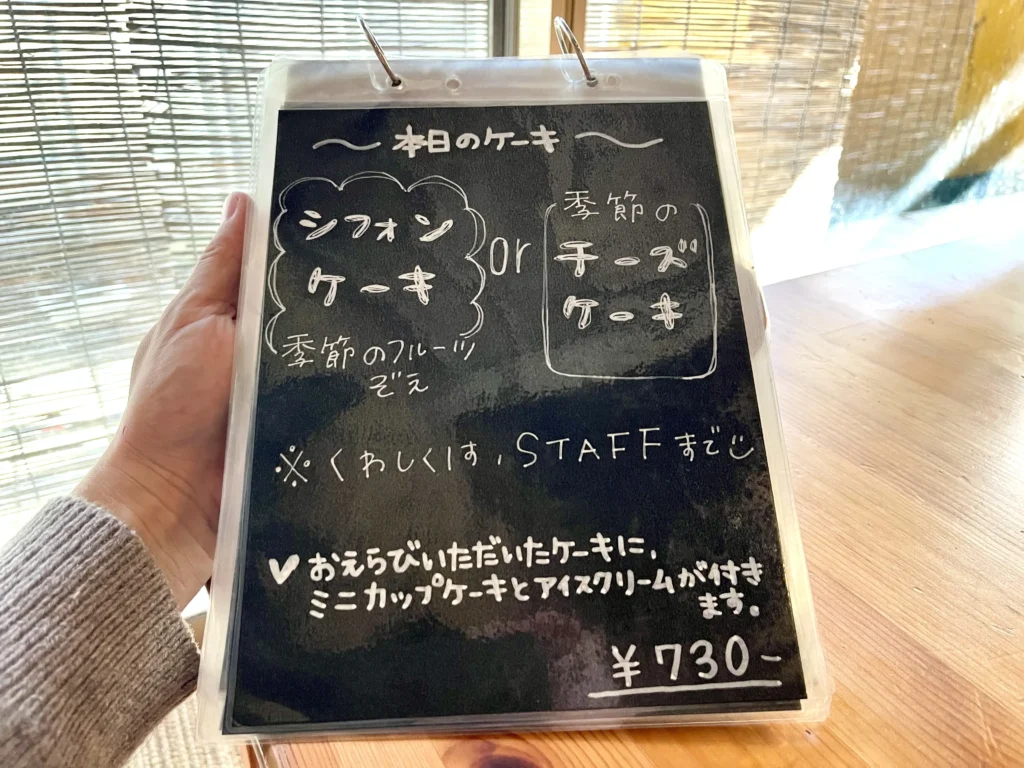 〜 本日のケーキ 〜
シフォン
ケーキ
季節のフルーツ
ぞえ
or
季節の
チーズ
ケーキ
※くわしくは、STAFFまで
♥ おえらびいただいたケーキに、
ミニカップケーキとアイスクリームが付き
ます。
¥730-